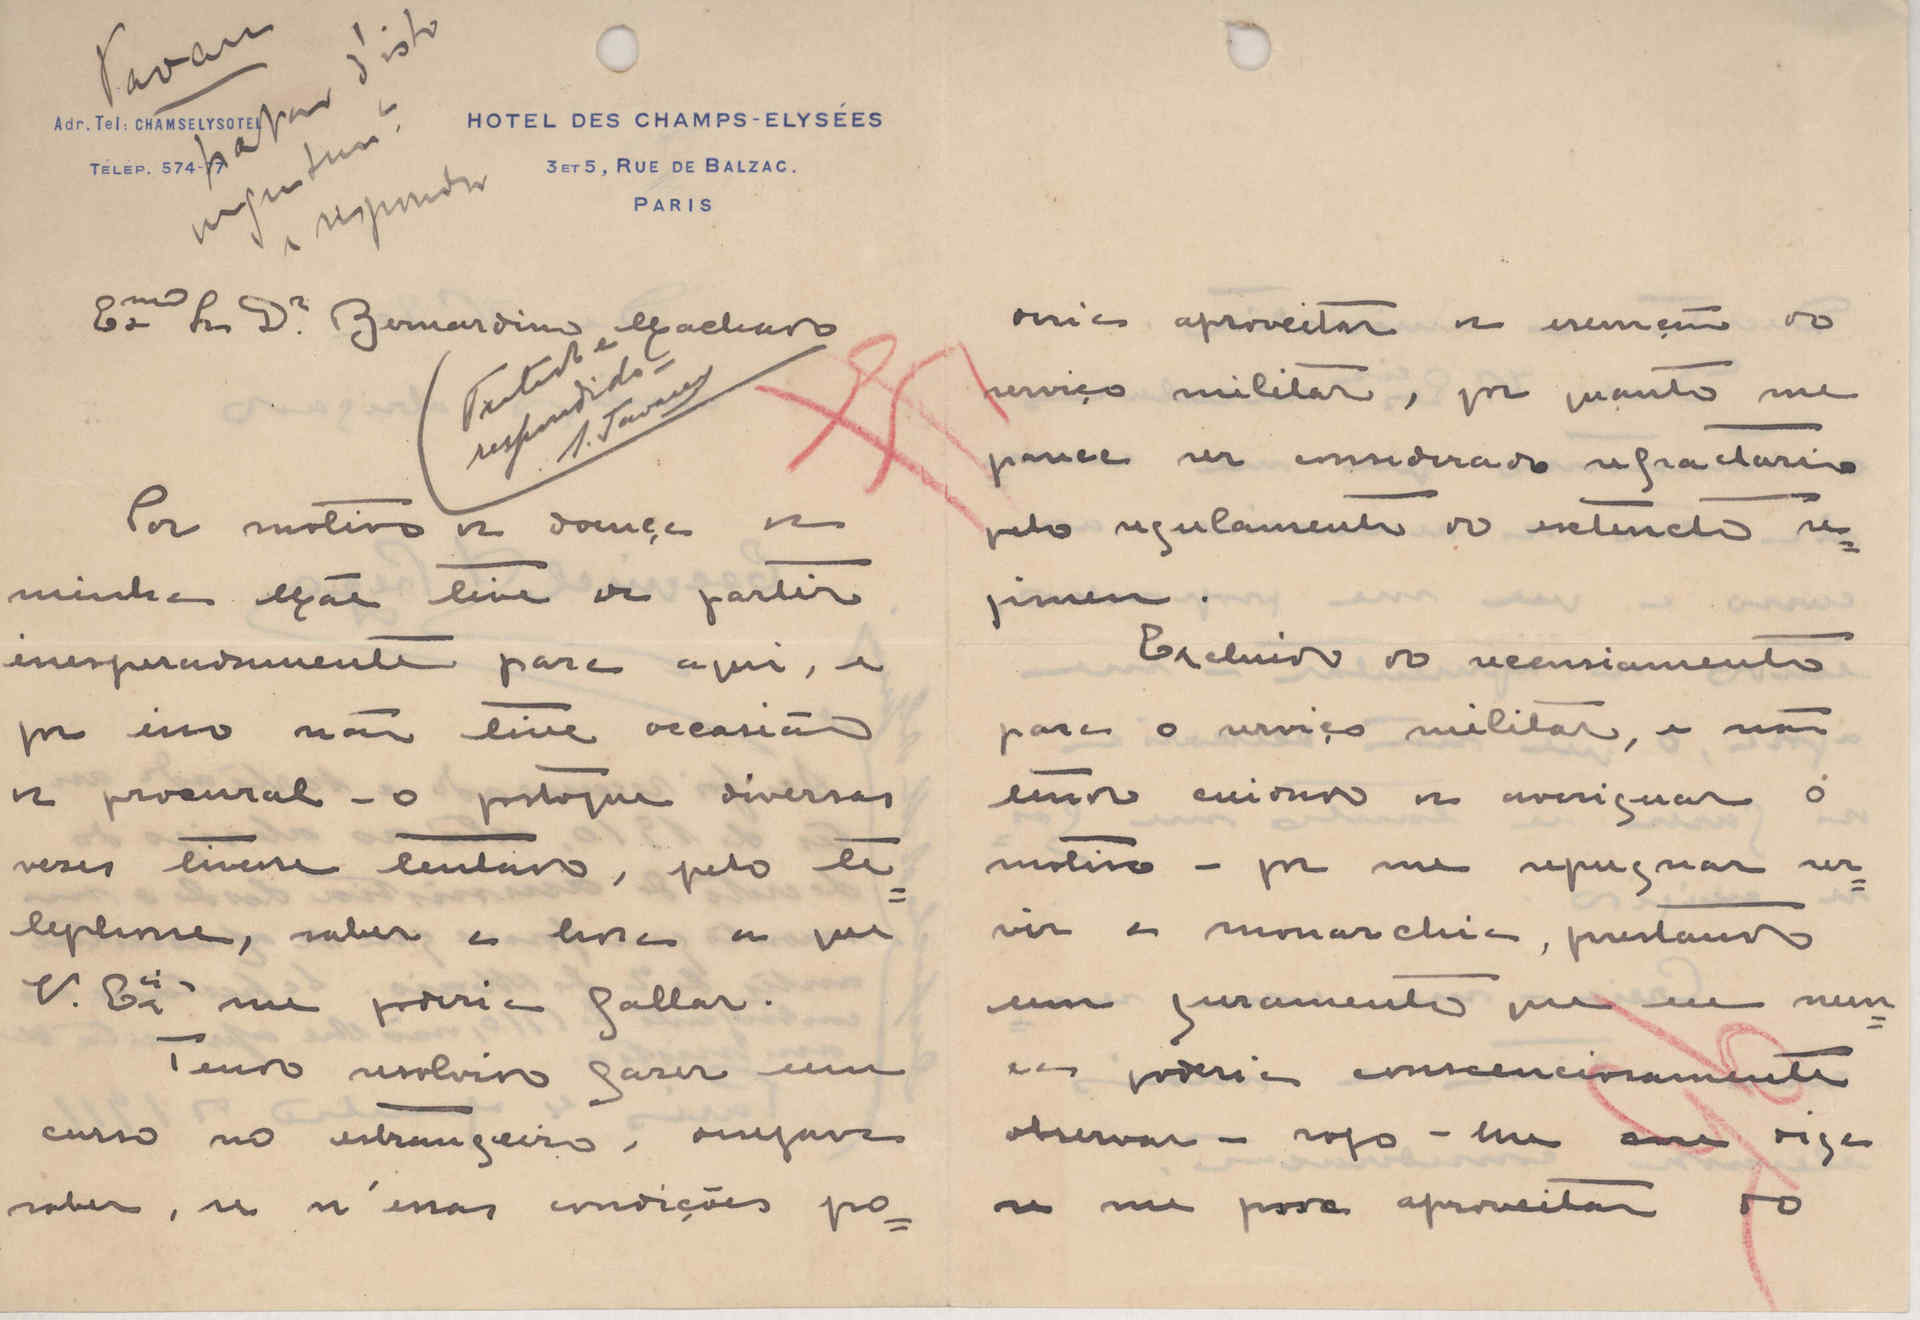 Tavares
trapar d'isto
urgentem.te
e responder
Adr. Tel: CHAMSELYSOTEL
TÉLÉP. 574-77
HOTEL DES CHAMPS-ELYSÉES
3 ET 5, RUE DE BALZAC.
PARIS
Exmo Sr. Dr. Bernardino Machado
Tratado e
respondido =
S. Tavares
Por motivo de doença de
minha Mãe tive de partir
inesperadamente para aqui, e
por isso não tive occasião
de procural-o postoque diversas
vezes tivesse tentado, pelo te=
lephone, saber a hora a que
V. Exa me poderia fallar.
Tendo resolvido fazer um
curso no estrangeiro, desejava
saber, se n'essas condições po=
deria aproveitar da isenção do
serviço militar, por quanto me
parece ser considerado refractario
pelo regulamento do extincto re=
gimen.
Excluido do recensiamento
para o serviço militar, e não
tendo cuidado de averiguar o
motivo - por me repugnar ser=
vir a monarchia, prestando
um juramento que eu nun=
ca poderia conscenciosamente
observar - rogo-lhe me diga
se me posso aproveitar do